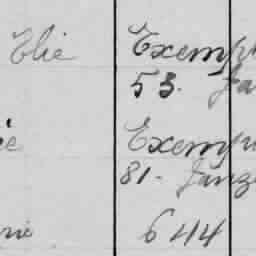 Elie Exemp
53. Ja
ie Exemp
81- Janz
rie 644